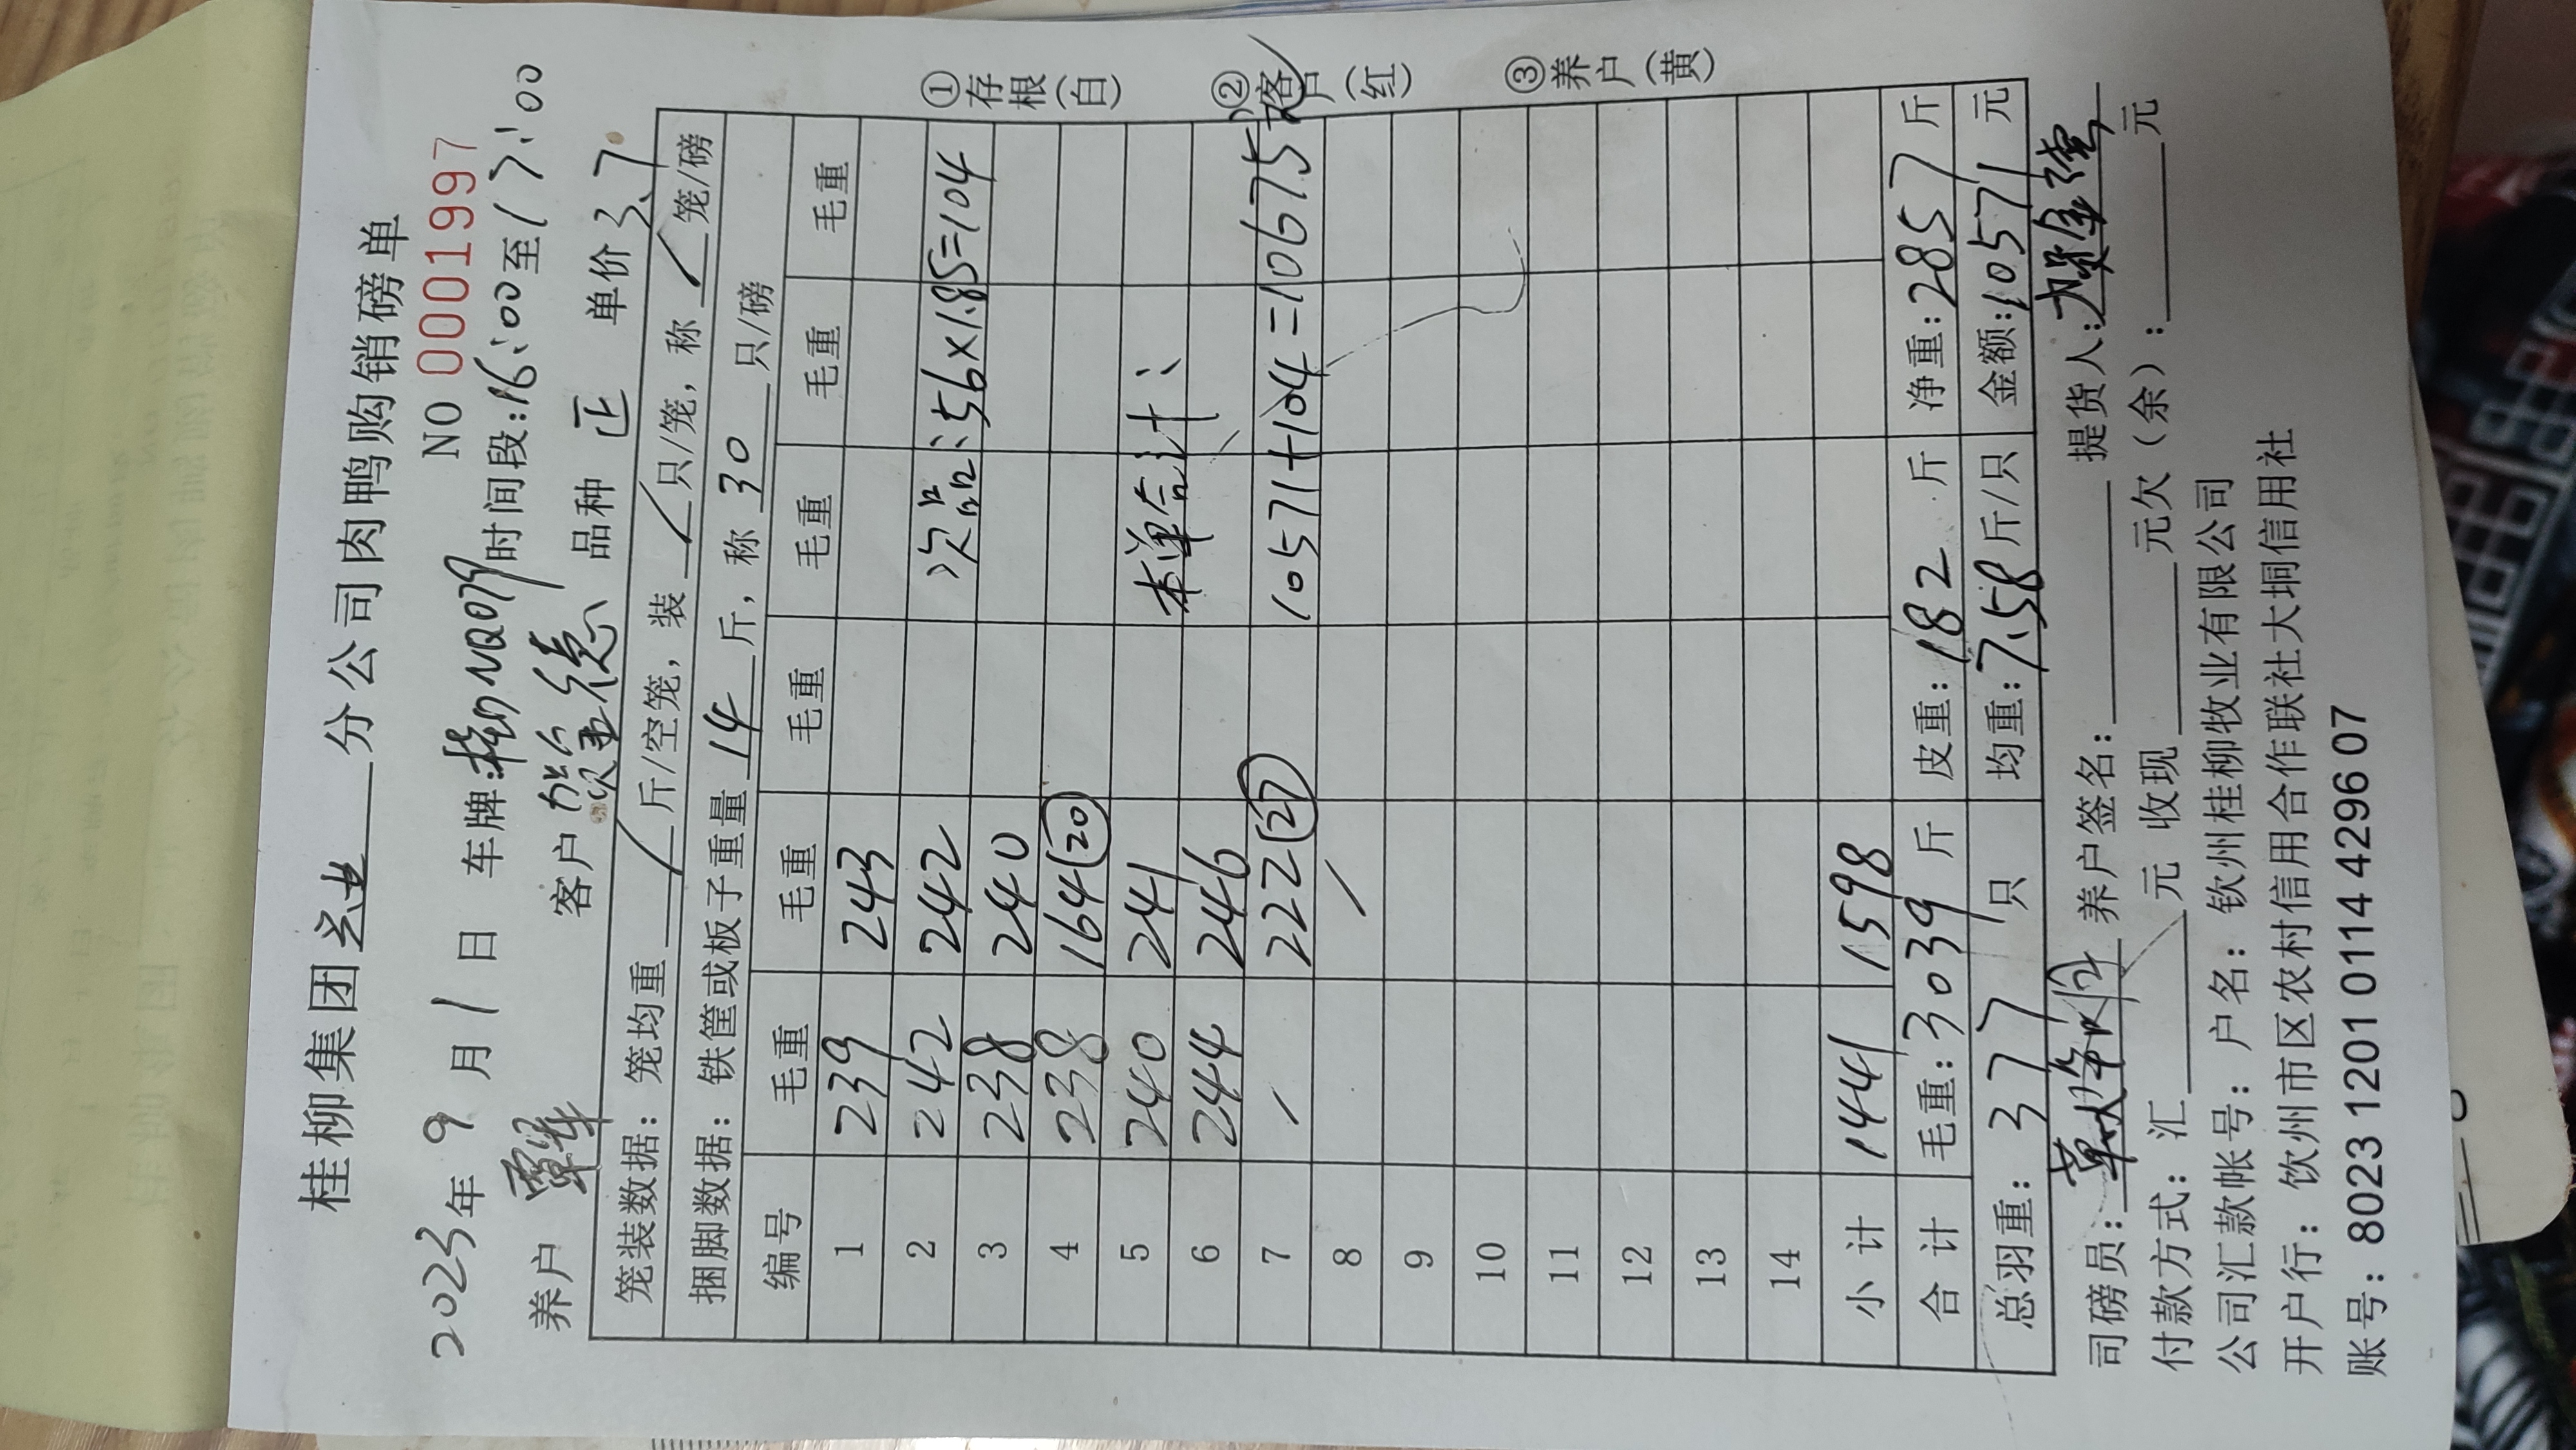 桂柳集团 分公司肉鸭购销磅单
NO 0001997
2023年9月1日 车牌: 时间段:16:00至17:00
养户 覃军 客户 品种 正 单价 3.7
笼装数据: 笼均重 / 斤/空笼, 装 / 只/笼, 称 / 笼/磅
捆脚数据: 铁筐或板子重量 14 斤, 称 30 只/磅
编号 毛重 毛重 毛重 毛重 毛重 毛重
1 239 243
2 242 242 次品:56×1.85=104
3 238 240
4 238 164(20)
5 240 241 本单合计:
6 244 246
7 / 222(27) 10571+104=10675元
8 /
9
10
11
12
13
14
小计 1441 1598
合计 毛重:3039斤 皮重:182斤 净重:2857斤
总羽重: 377只 均重:7.58斤/只 金额:10571元
司磅员: 养户签名: 提货人:
付款方式: 汇 元 收现 元欠(余): 元
公司汇款帐号: 户名: 钦州桂柳牧业有限公司
开户行: 饮州市区农村信用合作联社大垌信用社
账号: 8023 1201 0114 4296 07
①存根(白)
②客户(红)
③养户(黄)